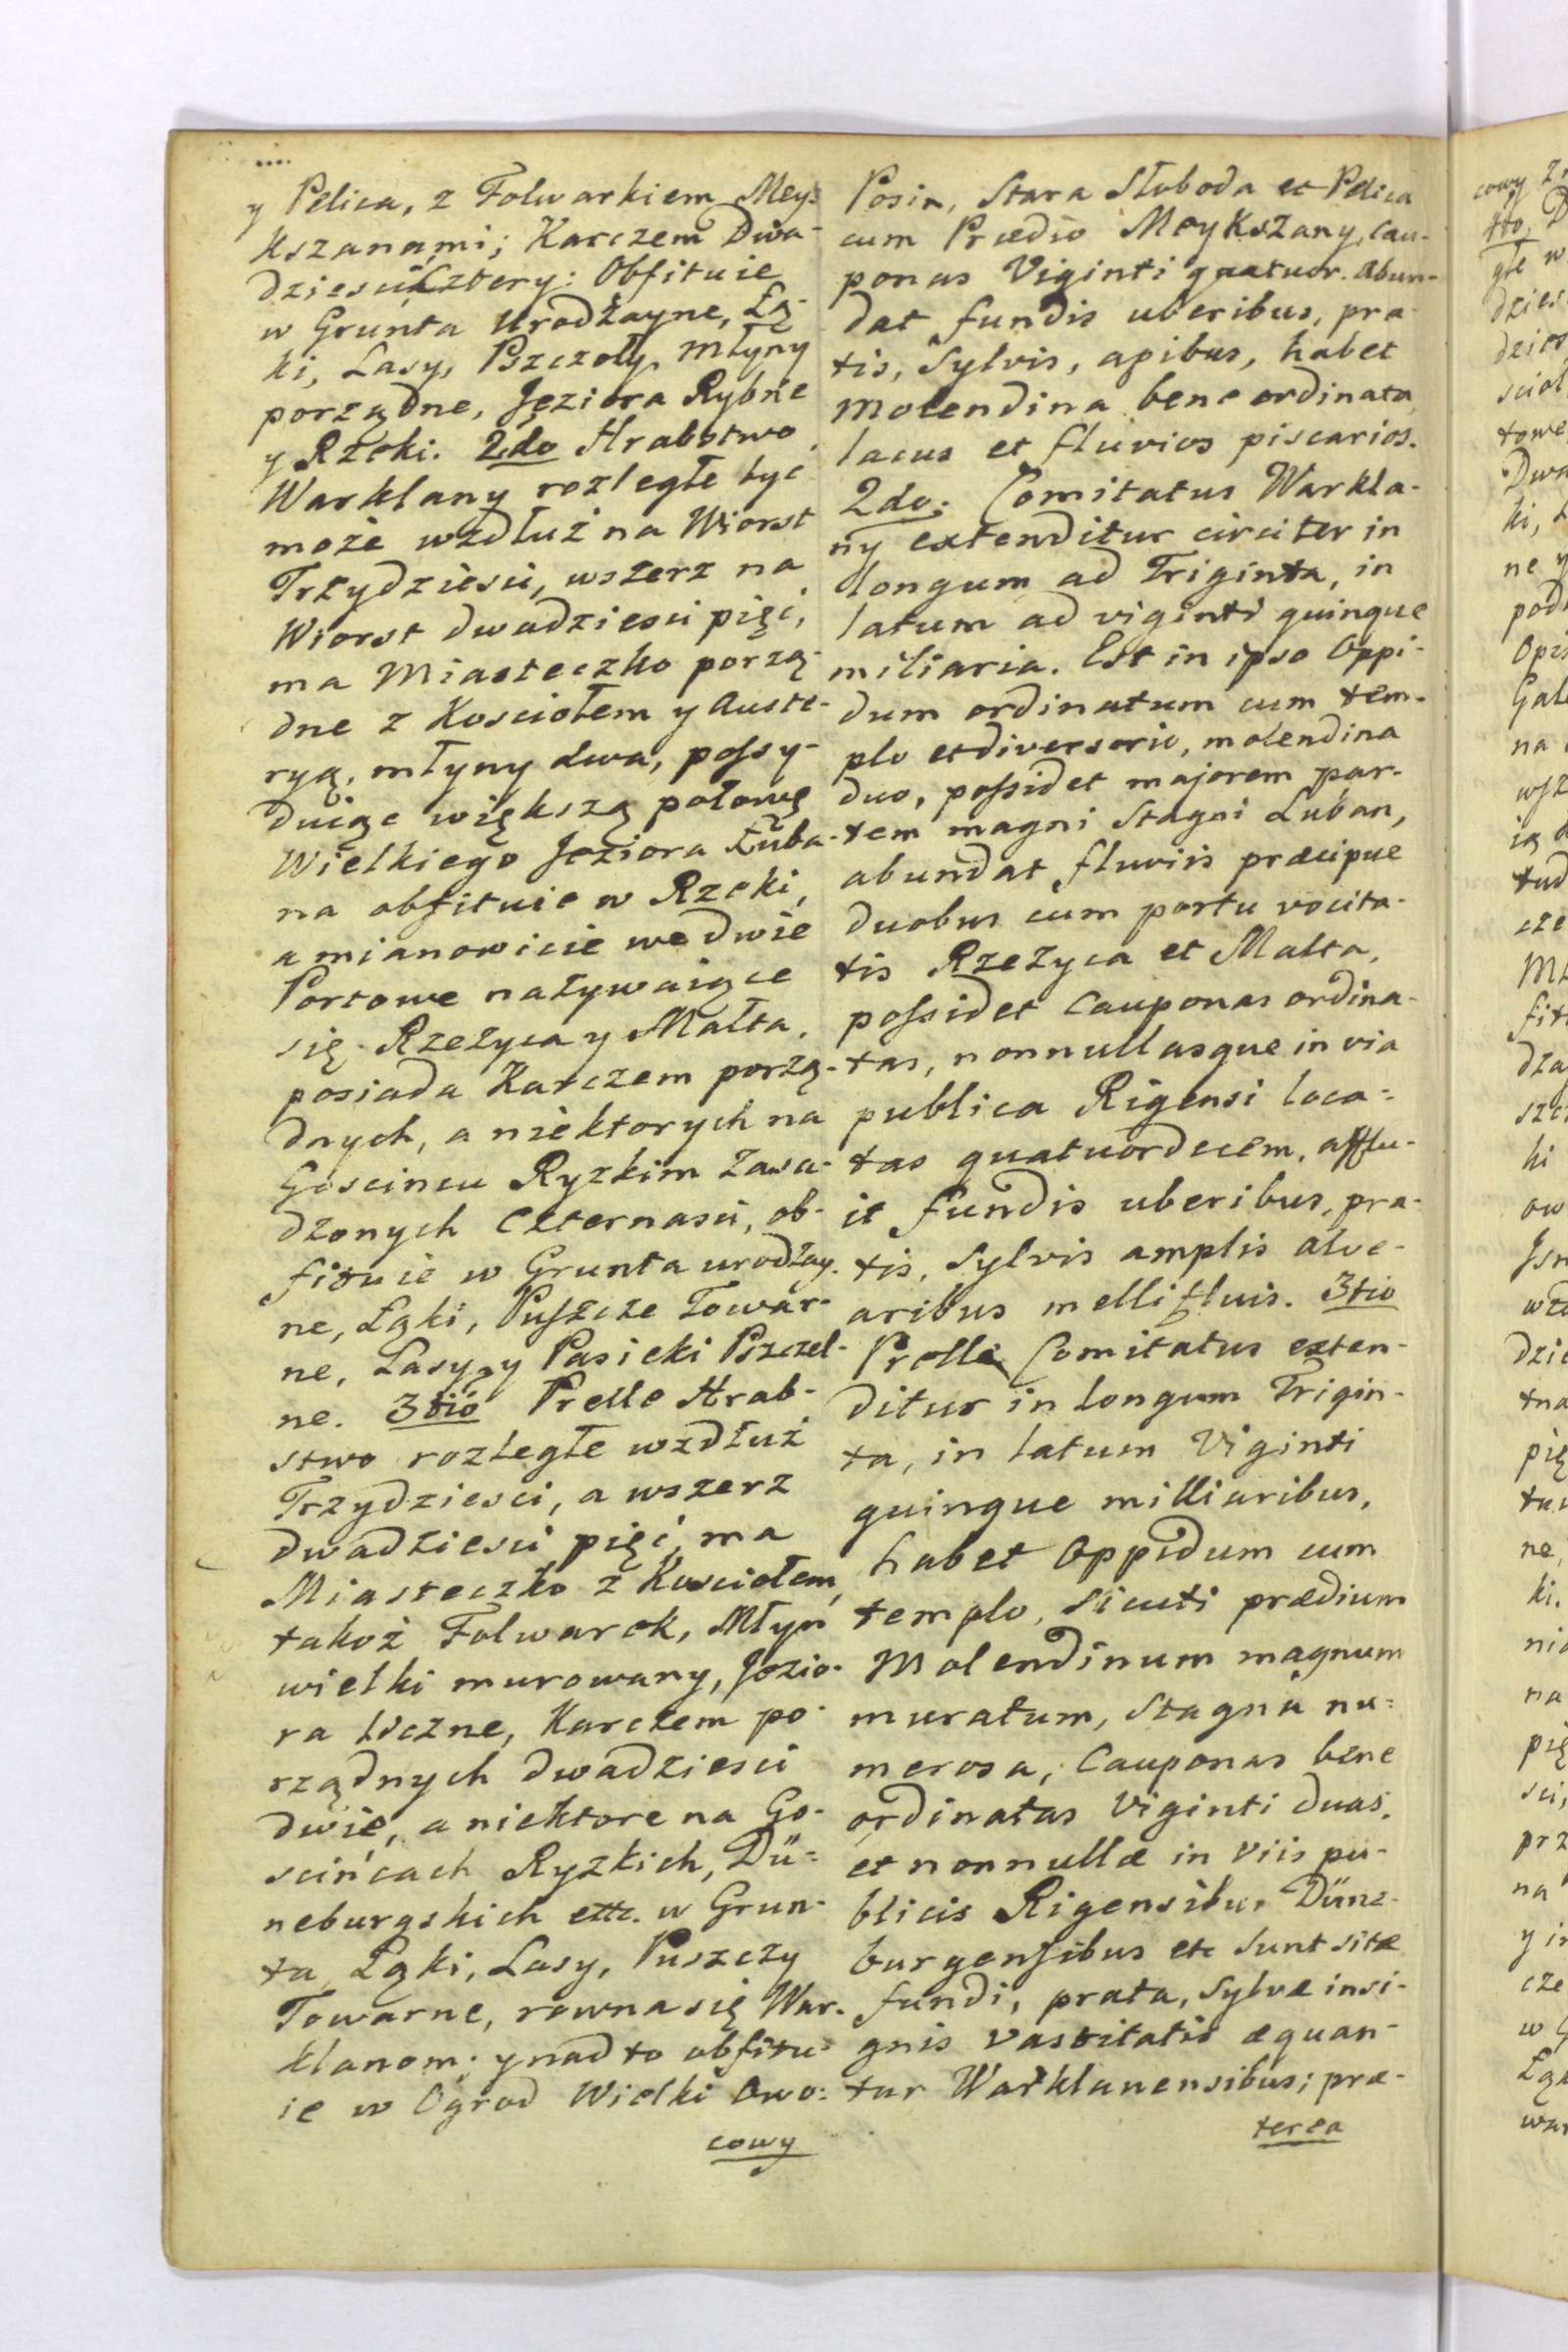 y Pelica, z Folwarkiem Mey-
kszanami; Karczem Dwa-
dziescia Cztery: Obfituie
w Grunta Urodżayne, Łą-
ki, Lasy, Pszczoły, Młyny
porządne, Jeziora Rybne
y Rzeki. 2do Hrabstwo
Warklany rozległe być
może wzdłuż na Wiorst
Trzydziesci, wszerz na
Wiorst dwadziesci pięć,
ma Miasteczko porzą-
dne z Kosciołem y Auste-
ryą, młyny dwa, possy-
duiąc większą połowę
Wielkiego Jeziora Łuba-
na obfituie w Rzeki,
a mianowicie we dwie
Portowe nazywaiące
się Rzeżyca y Małta.
posiada Karczem porzą-
dnych, a niektorych na
Goscincu Ryzkim zasa-
dzonych Czternasci, ob-
fituie w Grunta urodżay-
ne, Łąki, Puszcze Towar-
ne, Lasy, y Pasieki Pszczel-
ne. 3tio Prelle Hrab-
stwo rozległe wzdłuż
Trzydziesci, a wszerz
dwadziesci pięć, ma
Miasteczko z Kosciołem,
takoż Folwarek, Młyn
wielki murowany, Jezio-
ra liczne, Karczem po-
rządnych dwadziesci
dwie, a niektore na Go-
scińcach Ryzkich, Dü-
neburgskich etc. w Grun-
ta, Łąki, Lasy, Puszczy
Towarne, rowna się War-
klanom; y nad to obfitu-
ie w Ogrod Wielki Owo-
cowy
Posin, Stara Słoboda et Pelica
cum Prædio Meykszany, Cau-
ponas Viginti quatuor. Abun-
dat fundis uberibus, pra-
tis, Sylvis, apibus, habet
Molendina bene ordinata,
lacus et fluvios piscarios.
2do: Comitatus Warkla-
ny extenditur circiter in
longum ad Triginta, in
latum ad viginti quinque
miliaria. Est in ipso Oppi-
dum ordinatum cum tem-
plo et diversorio, molendina
duo, possidet majorem par-
tem magni Stagni Luban,
abundat fluviis præcipue
duobus cum portu vocita-
tis Rzeżyca et Malta,
possidet Cauponas ordina-
tas, nonnullasque in via
publica Rigensi loca-
tas quatuordecem, afflu-
it fundis uberibus, pra-
tis, Sylvis amplis alve-
aribus mellifluis. 3tio
Prelle Comitatus exten-
ditur in longum Trigin-
ta, in latum Viginti
quinque milliaribus,
habet Oppidum cum
templo, Sicuti prædium
Molendinum magnum
muratum, Stagna nu-
merosa, Cauponas bene
ordinatas Viginti duas,
et nonnullæ in Viis pu-
blicis Rigensibus Düne-
burgensibus etc Sunt sitæ
fundi, prata, Sylvæ insi-
gnis vastitatis æquan-
tur Warklanensibus; præ-
terea